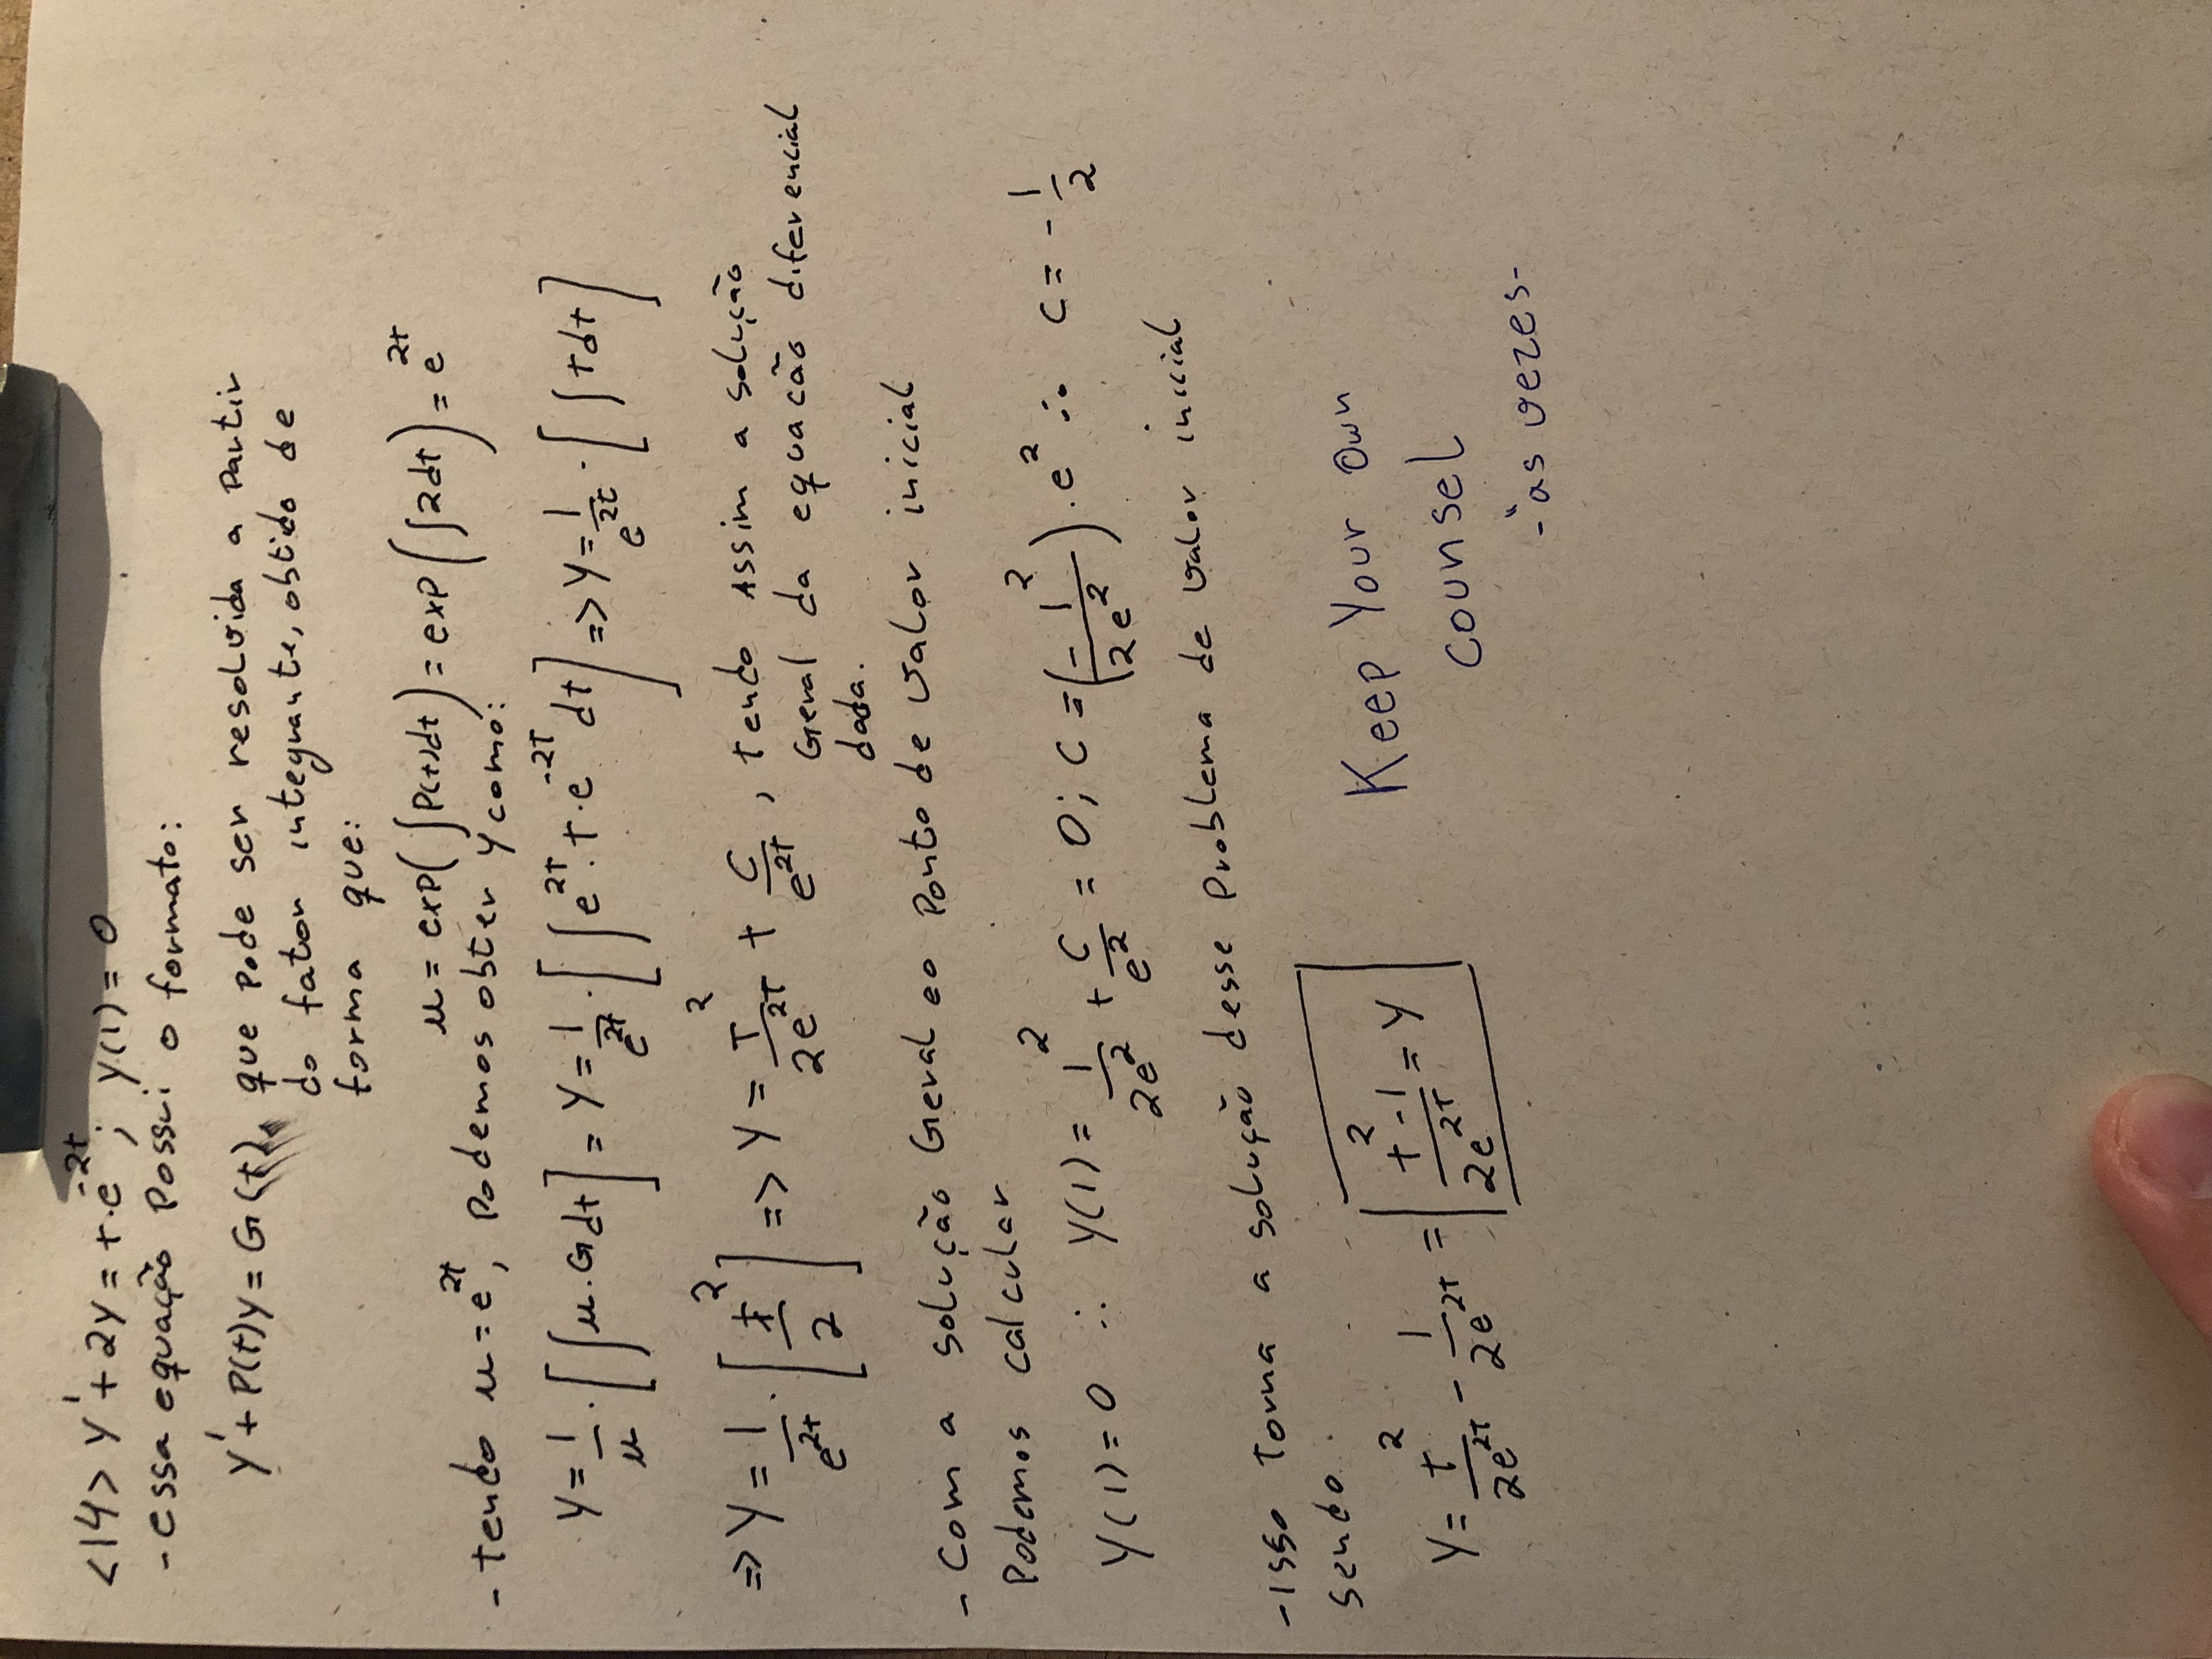 <14> y' + 2y = t·e^{-2t}; y(1) = 0
- essa equação possui o formato:
y' + P(t)y = G(t), que pode ser resolvida a partir
do fator integrante, obtido de
forma que:
μ = exp(∫P(t)dt) = exp(∫2dt) = e^{2t}
- tendo μ = e^{2t}, podemos obter y como:
y = 1/μ · [∫μ.G dt] = y = 1/e^{2t} · [∫e^{2t}.t.e^{-2t} dt] => y = 1/e^{2t} · [∫t dt]
=> y = 1/e^{2t} · [t^2/2] => y = t^2/2e^{2t} + C/e^{2t}, tendo Assim a solução
Geral da equacão diferencial
dada.
- Com a solução Geral e o ponto de valor inicial
Podemos calcular
y(1) = 0 ∴ y(1) = 1^2/2e^2 + C/e^2 = 0; C = (-1^2/2e^2) · e^2 ∴ C = -1/2
- Isso torna a solução desse problema de valor inicial
sendo.
y = t^2/2e^{2t} - 1/2e^{2t} = t^2-1/2e^{2t} = y
Keep Your Own
counsel
-"as vezes-